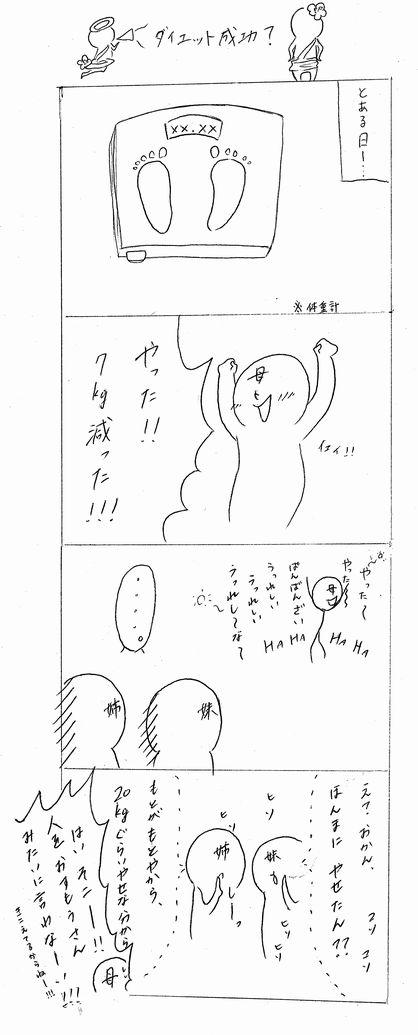 ダイエット成功？
とある日ー…
××.××
※体重計
母
イェイ!!
やった!!
7kg減った!!!
やった〜
やった〜
母
ばんばんざい
うっれしい
うっれしい
うっれし〜な〜
HAHA
HAHA
・・・・。
妹
姉
えて、おかん、
ほんまに やせたん??
コソ コソ
ヒソ
妹
ヒソ
ヒソ
ヒソ
姉
しーっ
もとがもとやから、
20kgぐらいやせな分から
はい、そこー!!
人をおすもうさん
みたいに言わなーい!!!
きこえてるからねー!!!
母